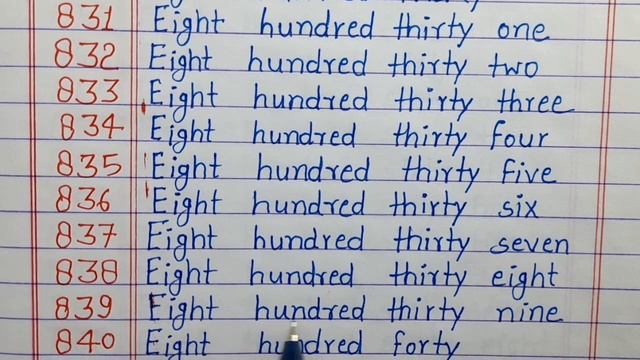 831 Eight hundred thirty one
832 Eight hundred thirty two
833 Eight hundred thirty three
834 Eight hundred thirty four
835 Eight hundred thirty five
836 Eight hundred thirty six
837 Eight hundred thirty seven
838 Eight hundred thirty eight
839 Eight hundred thirty nine
840 Eight hundred forty